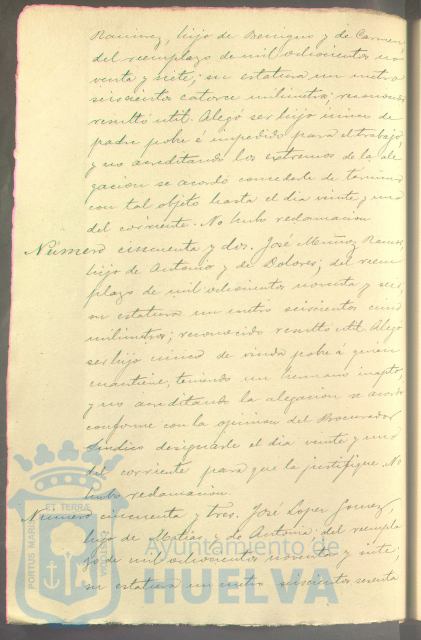 Ramirez, hijo de Benigno y de Carmen,
del reemplazo de mil ochocientos no
venta y siete; su estatura un metro
seiscientos catorce milimetros; reconocido
resultó util. Alegó ser hijo unico de
padre pobre é impedido para el trabajo,
y no acreditando los extremos de la ale
gacion se acordó concederle de término
con tal objeto hasta el dia veinte y uno
del corriente. No hubo reclamacion
Número cincuenta y dos. José Muñoz
hijo de Antonio y de Dolores; del reem
plazo de mil ochocientos noventa y seis,
su estatura un metro seiscientos cinco
milimetros; reconocido resultó util. Alegó
ser hijo unico de viuda pobre á quien
mantiene, teniendo un hermano inapto,
y no acreditando la alegacion se acordó
conforme con la opinion del Procurador
Sindico designarle el dia veinte y uno
del corriente para que la justifique. No
hubo reclamacion.
Número cincuenta y tres. José Lopez Gomez,
hijo de Matias y de Antonia; del reempla
zo de mil ochocientos noventa y siete;
su estatura un metro seiscientos
PORTUS MARIS ET TERRÆ CUSTODIA
Ayuntamiento de
HUELVA